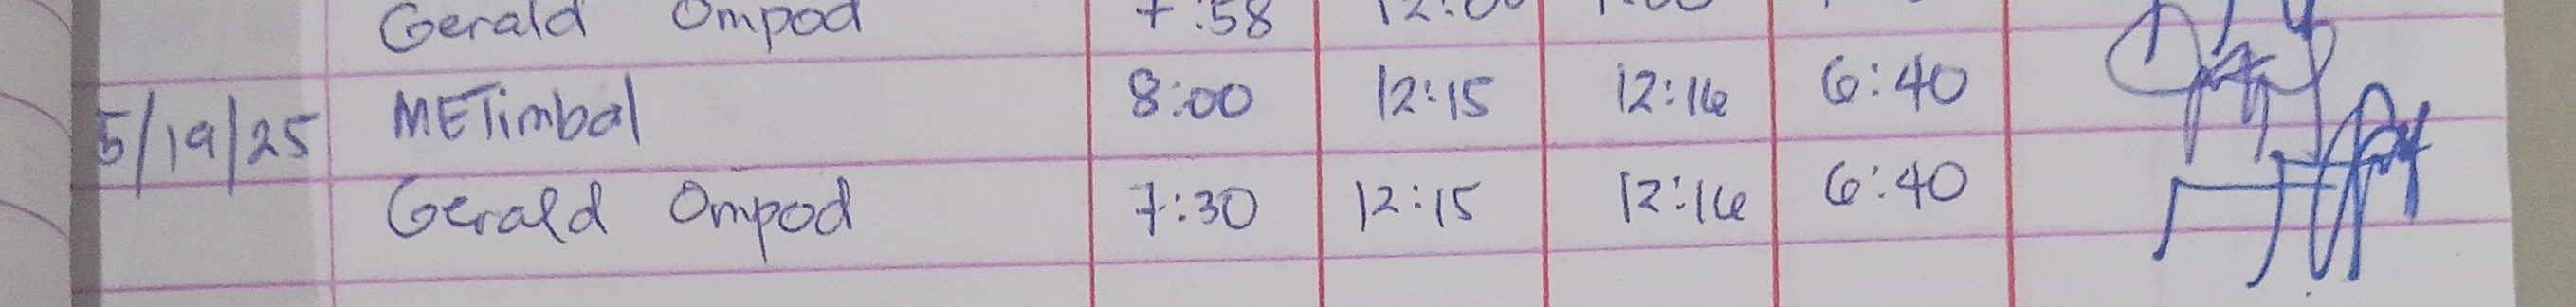 Gerald Ompod 7:58
METimbal 8:00 12:15 12:16 6:40
5/19/25
Gerald Ompod 7:30 12:15 12:16 6:40